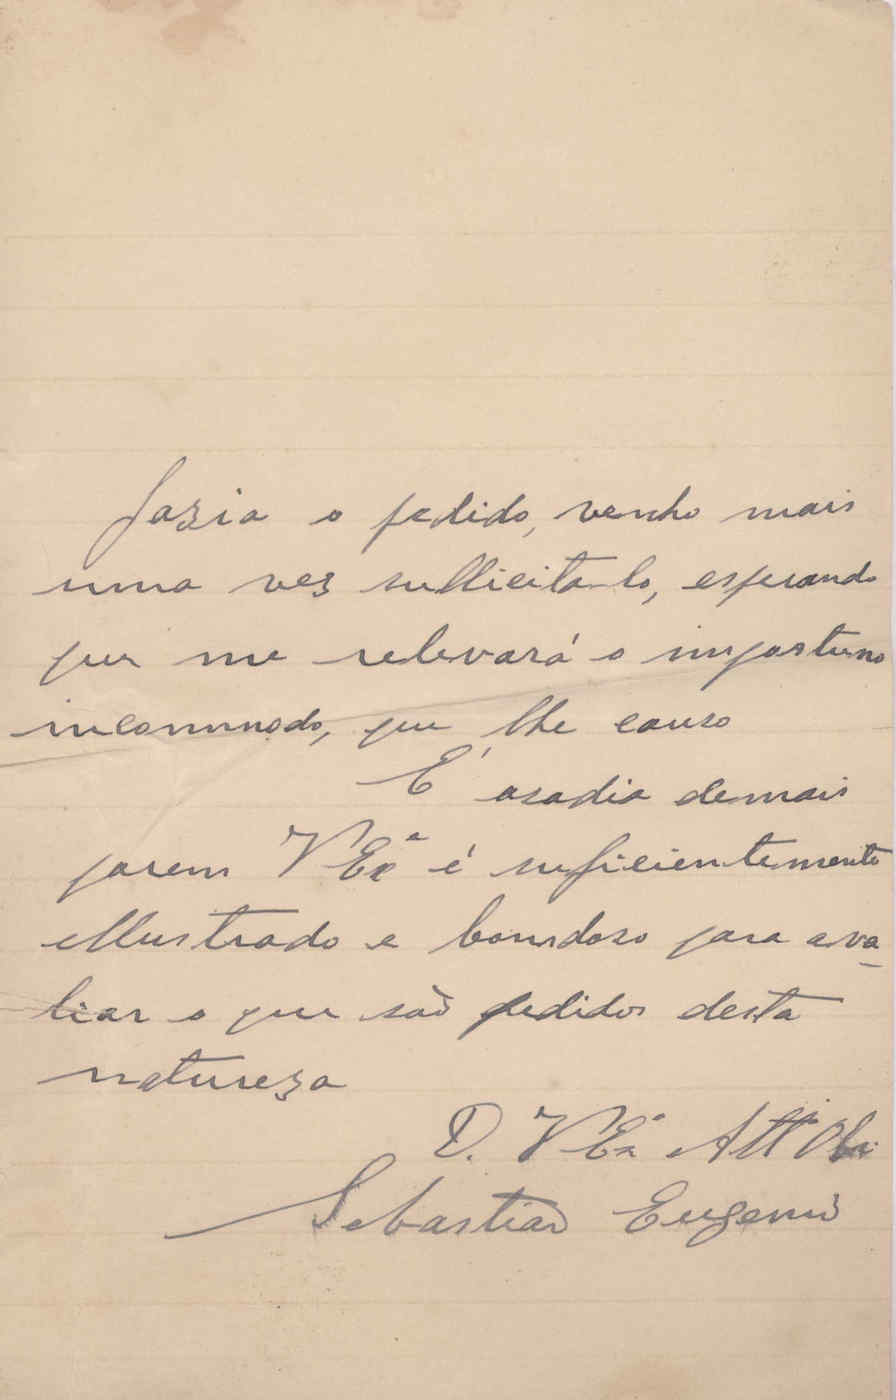 fazia o pedido, venho mais
uma vez sullicita-lo, esperando
que me relevará o importuno
incommodo, que lhe causo
É osadia demais
porem VExª é suficientemente
illustrado e bondoso para ava-
liar o que são pedidos desta
natureza
D. VExª Attº
Sebastião Eugenio